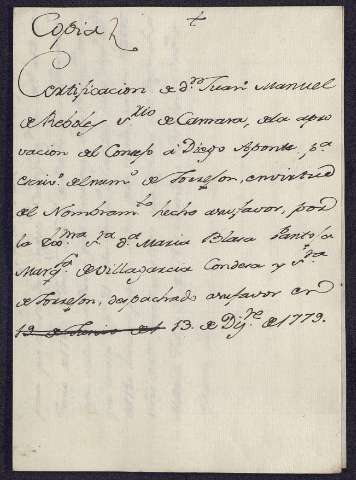 Copia
+
Certificacion de dn Juan Manuel
de Rebòles srio de Camara, de la apro
vacion del Consejo à Diego Aponte, pa
escrivo. del numo de Torrejon, en virtud
del Nombramto hecho a su favor, por
la Exma sra da Maria Blasa Pantoja
Marqsa de Villagarcia Condesa y sra
de Torrejon, despachado a su favor en
13 de Dizre de 1779.